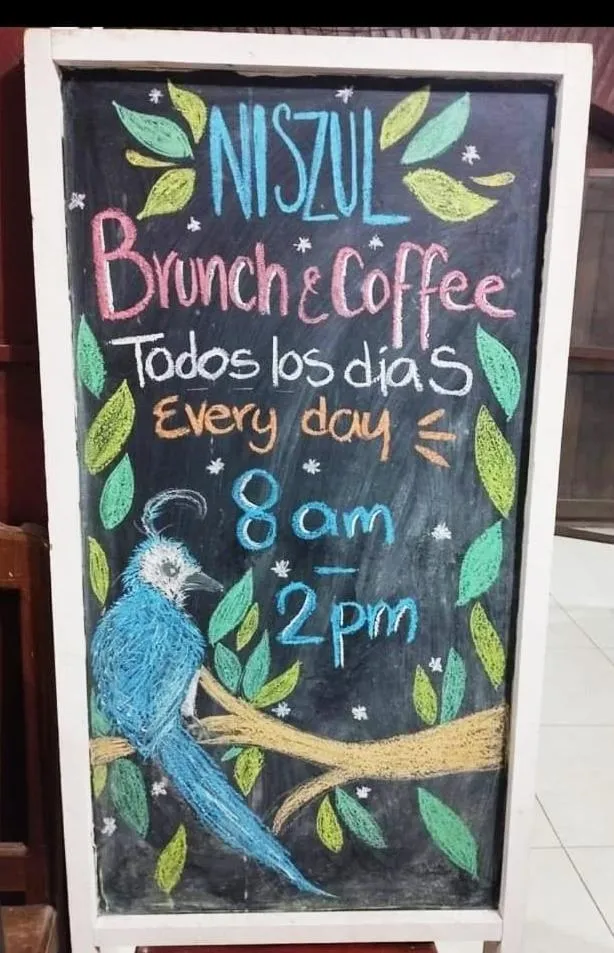 NISZUL
Brunch & Coffee
Todos los días
Every day
8 am
–
2pm